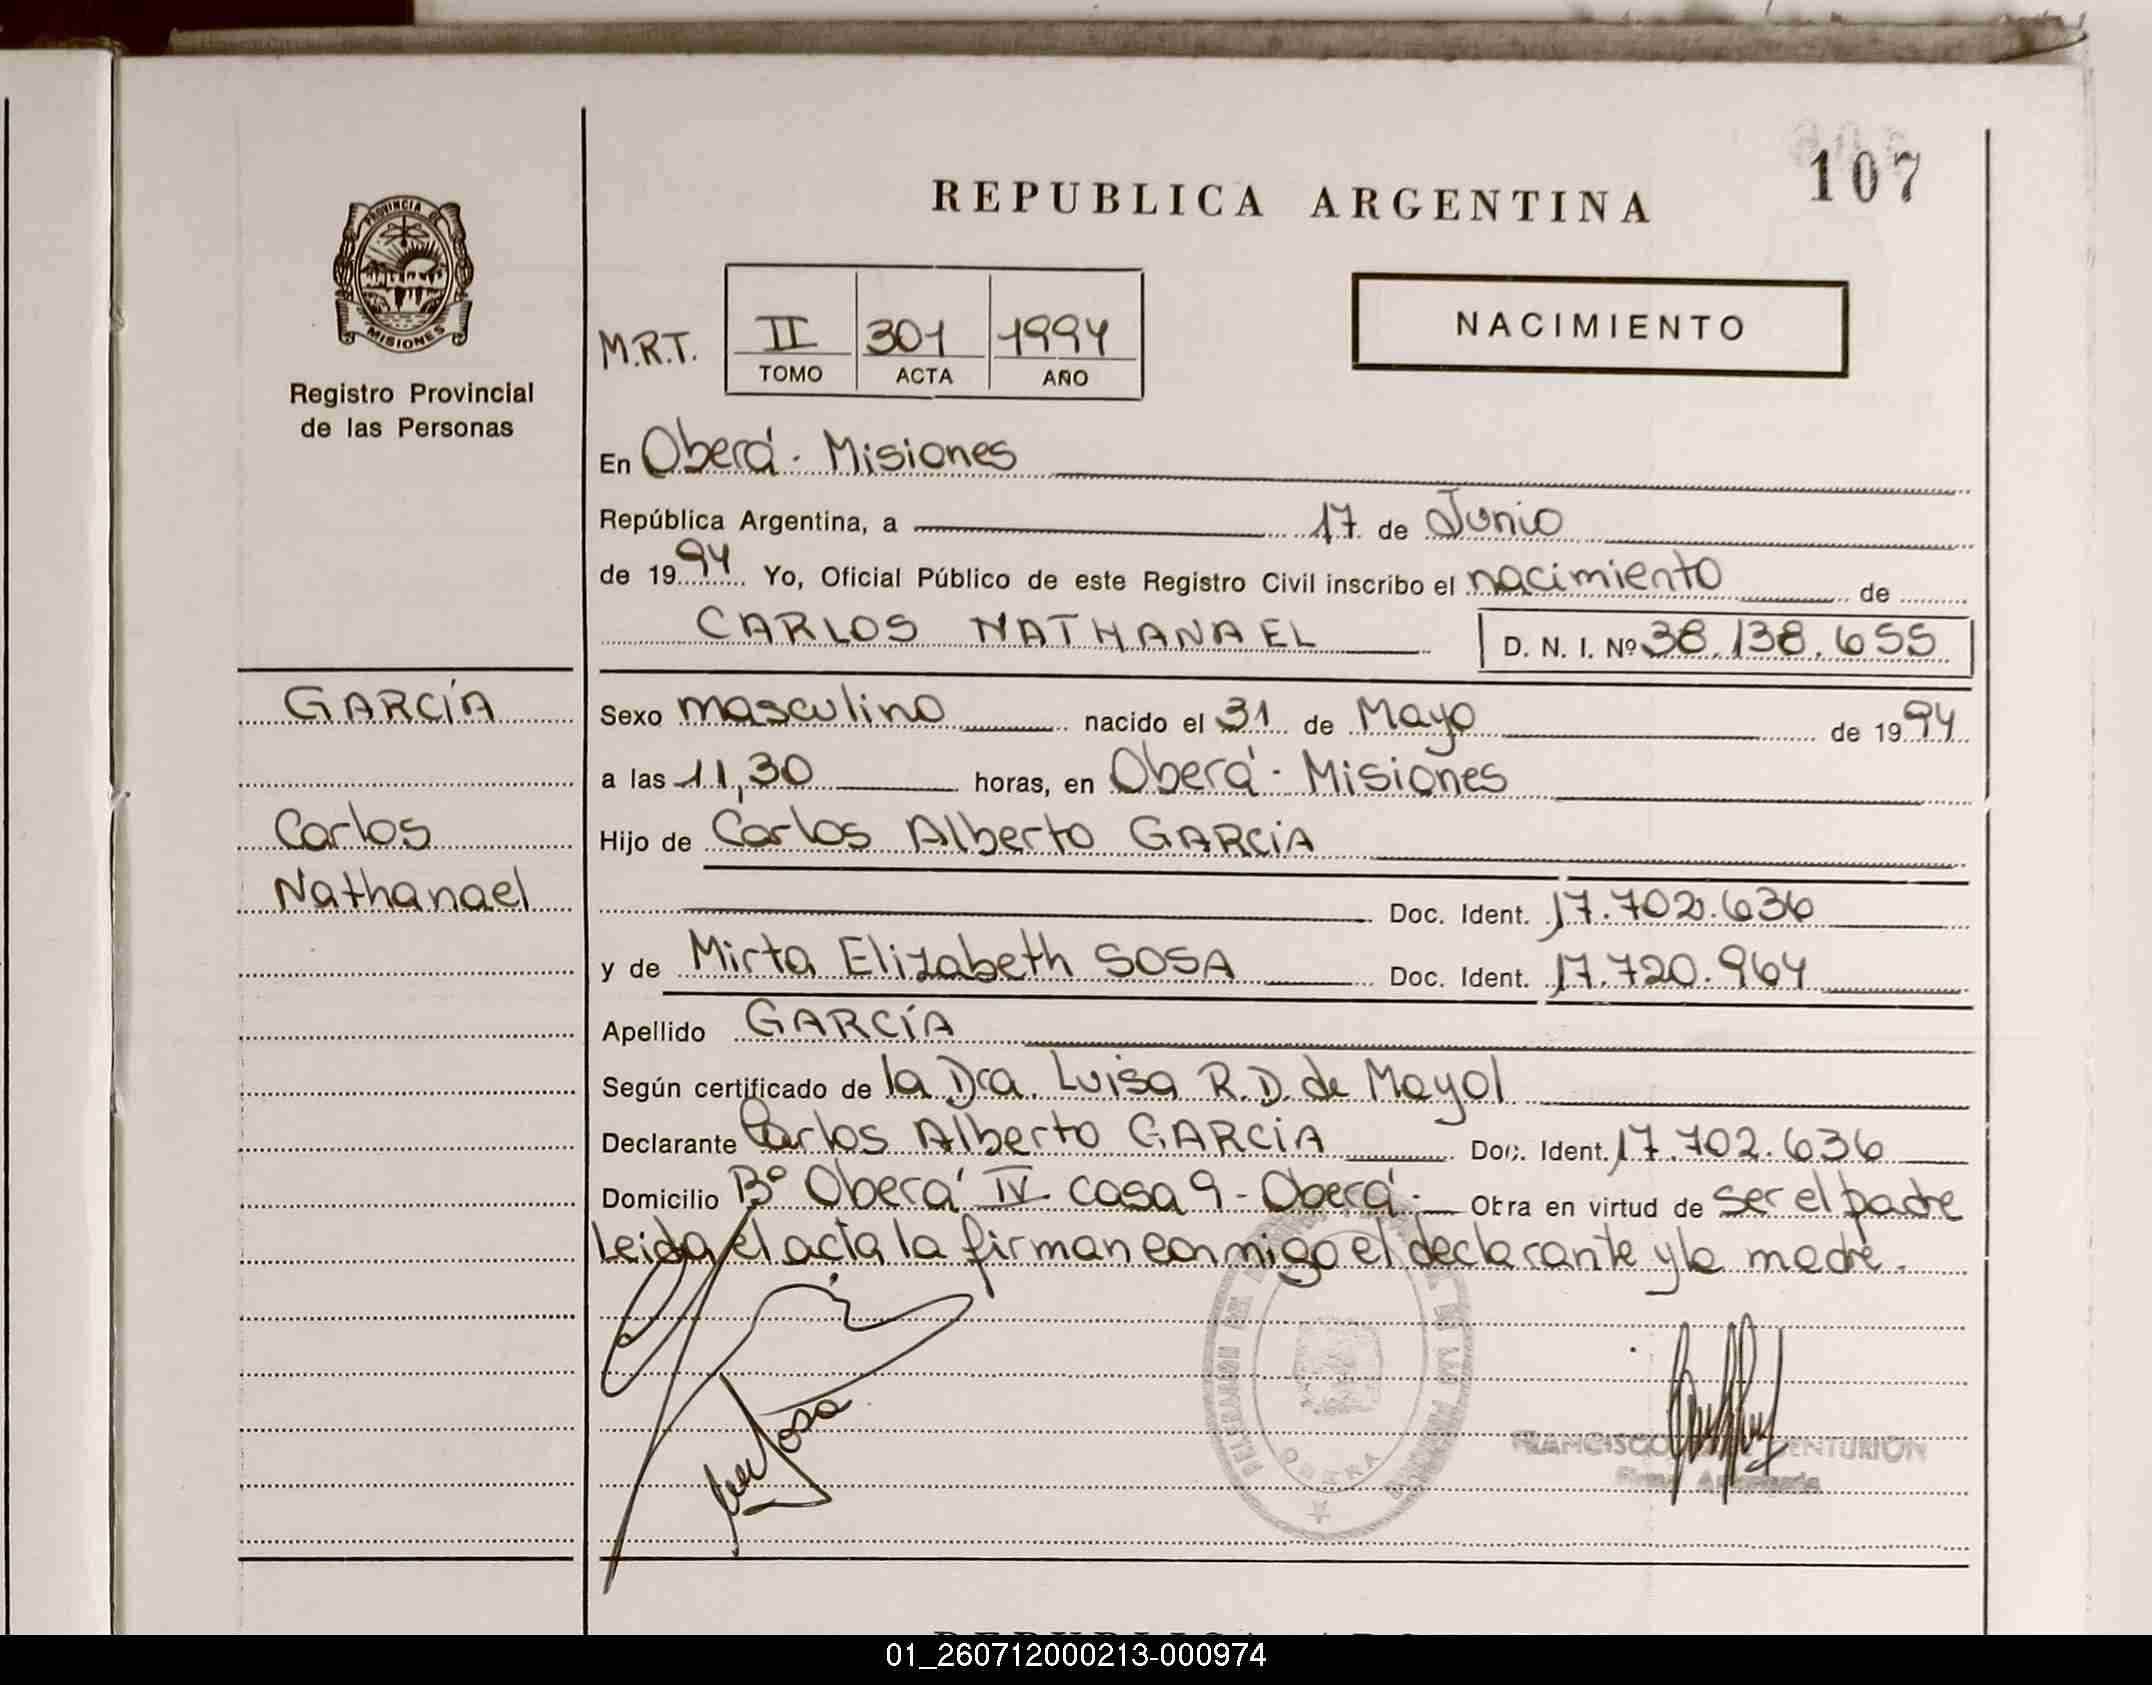 107
REPUBLICA ARGENTINA
PROVINCIA DE
MISIONES
Registro Provincial
de las Personas
M.R.T.
II 301 1994
TOMO ACTA AÑO
NACIMIENTO
En Oberá - Misiones
República Argentina, a 17 de Junio
de 1994 Yo, Oficial Público de este Registro Civil inscribo el nacimiento de
CARLOS NATHANAEL D. N. I. Nº 38.138.655
GARCÍA
Carlos
Nathanael
Sexo masculino nacido el 31 de Mayo de 1994
a las 11,30 horas, en Oberá - Misiones
Hijo de Carlos Alberto GARCIA
Doc. Ident. 17.702.636
y de Mirta Elizabeth SOSA Doc. Ident. 17.720.964
Apellido GARCÍA
Según certificado de la Dra. Luisa R.D. de Mayol
Declarante Carlos Alberto GARCIA Doc. Ident. 17.702.636
Domicilio Bº Oberá IV casa 9 - Oberá - Obra en virtud de ser el padre
Leida el acta la firman conmigo el declarante y la madre.
Sosa
OBERA
FRANCISCO CENTURION
01_260712000213-000974